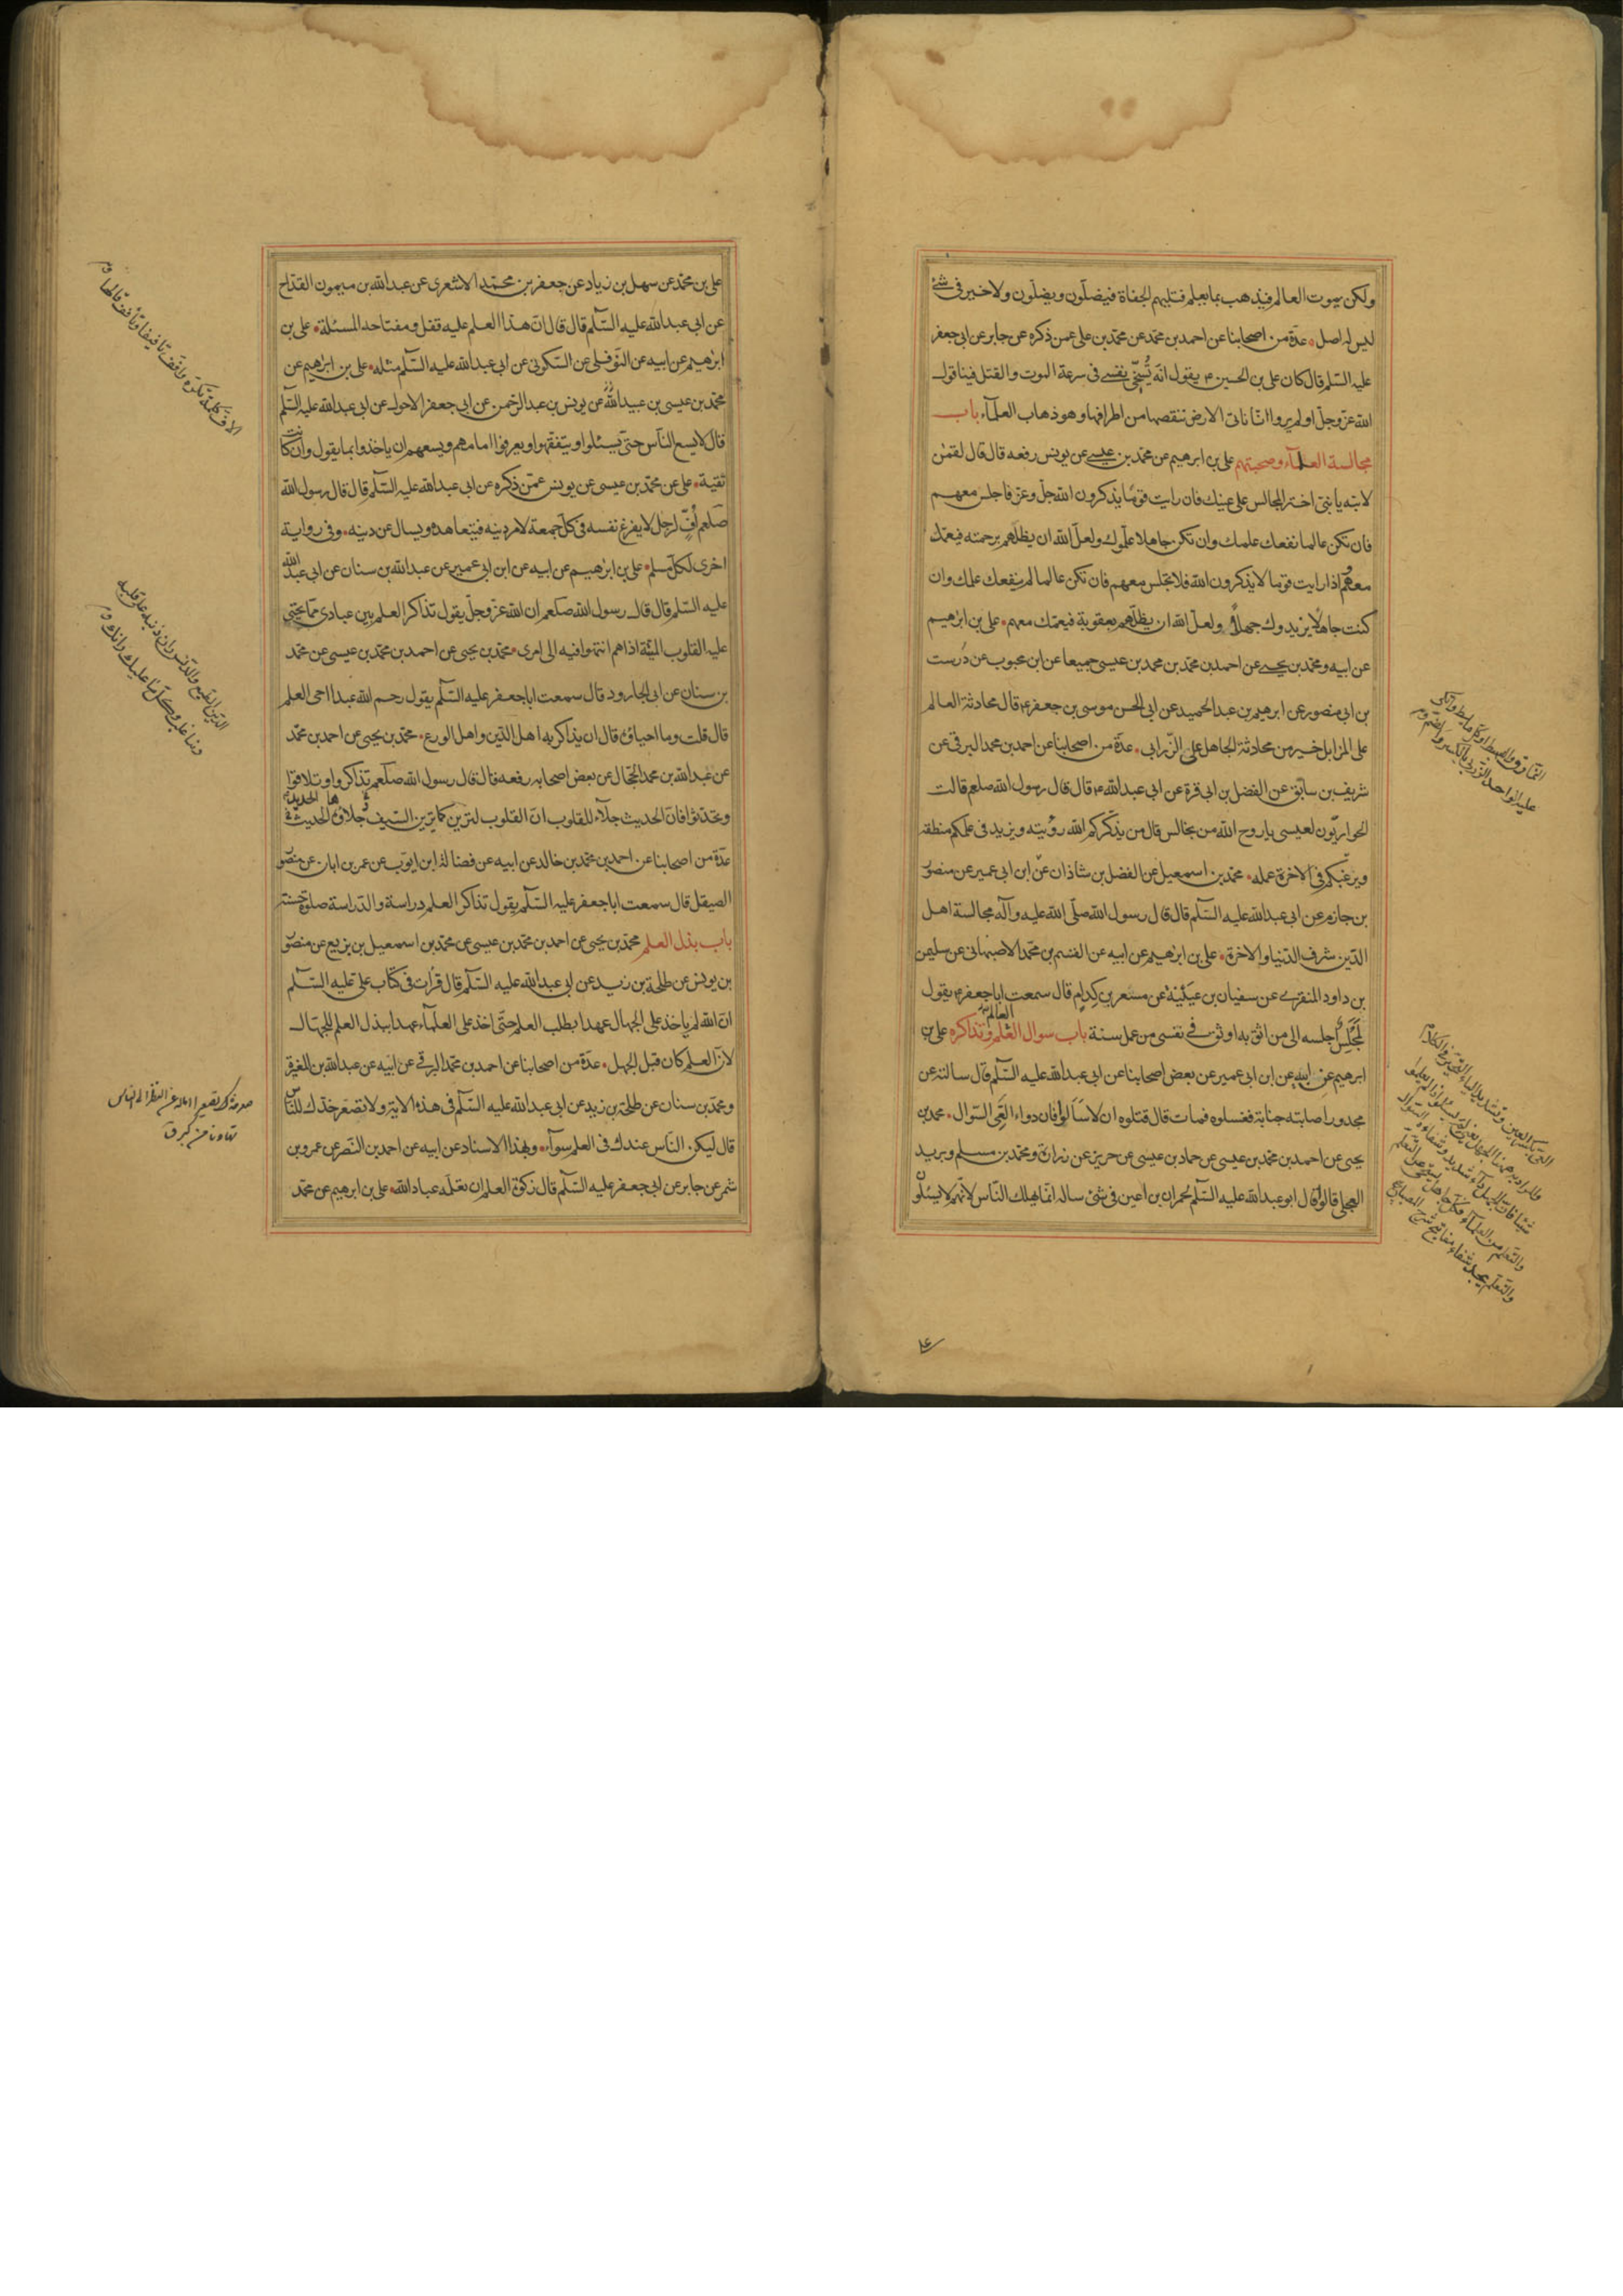 ولكن يموت العالم فيذهب بما يعلم فتليهم الجفاة فيضلّون ويضلّون ولا خير فى شئ
ليس له اصل عدّة من اصحابنا عن احمد بن محمّد عن محمّد بن على عمن ذكره عن جابر عن ابى جعفر
عليه السّلم قال كان على بن الحسين ع يقول انّه تُسخّى نفسى فى سرعة الموت والقتل فينا قول
الله عزّ وجلّ اولم يروا انّا ناتى الارض ننقصها من اطرافها وهو ذهاب العلمآء باب
مجالسة العلمآء وصحبتهم على بن ابرهيم عن محمّد بن عيسى عن يونس رفعه قال قال لقمٰن
لابنه يا بنىّ اختر المجالس على عينك فان رايت قومًا يذكرون الله جلّ وعزّ فاجلس معهم
فان تكن عالما نفعك علمك وان تكن جاهلا علّموك ولعلّ الله ان يظلّهم برحمته فيعمّك
معهم واذا رايت قوما لا يذكرون الله فلا تجلس معهم فان تكن عالما لم ينفعك علمك وان
كنت جاهلًا يزيدوك جهلًا ولعلّ الله ان يظلّهم بعقوبة فيعمّك معهم على بن ابرٰهيم
عن ابيه ومحمّد بن يحيى عن احمد بن محمّد بن محمد بن عيسى جميعا عن ابن محبوب عن دُرست
بن ابى منصور عن ابرهيم بن عبد الحميد عن ابى الحسن موسى بن جعفر ع قال محادثة العالم
على المزابل خير من محادثة الجاهل على الزّرابى عدّة من اصحابنا عن احمد بن محمد البرقى عن
شريف بن سابق عن الفضل بن ابى قرة عن ابى عبدالله ع قال قال رسول الله صلعم قالت
الحواريّون لعيسى يا روح الله من نجالس قال من يذكّركم الله رؤيته ويزيد فى علمكم منطقه
ويرغّبكم فى الاخرة عمله محمّد بن اسمعيل عن الفضل بن شاذان عن ابن ابى عمير عن منصور
بن حازم عن ابى عبدالله عليه السّلم قال قال رسول الله صلّى الله عليه وآله مجالسة اهل
الدّين شرف الدّنيا والاخرة على بن ابرٰهيم عن ابيه عن القسم بن محمّد الاصبهانى عن سليمن
بن داود المنقرى عن سفيان بن عيَيْنة عن مسعر بن كدام قال سمعت ابا جعفر ع يقول
لمجلس اجلسه الى من اثق به اوثق فى نفسى من عمل سنة باب سوال العالم وتذاكره على بن
ابرهيم عن ابيه عن ابن ابى عمير عن بعض اصحابنا عن ابى عبدالله عليه السّلم قال سالته عن
مجدور اصابته جنابة فغسلوه فمات قال قتلوه ان لا سَألوا فان دواء العَىّ السّوال محمد بن
يحيى عن احمد بن محمّد بن عيسى عن حماد بن عيسى عن حريز عن زرارة ومحمّد بن مسلم وبريد
العجلى قالوا قال ابو عبدالله عليه السّلم لحمران بن اعين فى شئ ساله انّما يهلك النّاس لانّهم لا يسئلون
على بن محمّد عن سهل بن زياد عن جعفر بن محمّد الاشعرى عن عبدالله بن ميمون القدّاح
عن ابى عبدالله عليه السّلم قال قال انّ هذا العلم عليه قفل ومفتاحه المسئلة على بن
ابرٰهيم عن ابيه عن النّوفلى عن السّكونى عن ابى عبدالله عليه السّلم مثله على بن ابرٰهيم عن
محمّد بن عيسى بن عبيد الله عن يونس بن عبد الرّحمن عن ابى جعفر الاحول عن ابى عبدالله عليه السّلم
قال لا يسع النّاس حتى يسئلوا ويتفقّهوا ويعرفوا امامهم ويسعهم ان ياخذوا بما يقول وان كانت
تقية على عن محمّد بن عيسى عن يونس عمّن ذكره عن ابى عبدالله عليه السّلم قال قال رسول الله
صلعم اُفّ لرجل لا يفرغ نفسه فى كلّ جمعة لامر دينه فيتعاهده ويسال عن دينه وفى رواية
اخرى لكلّ مسلم على بن ابرٰهيم عن ابيه عن ابن ابى عمير عن عبدالله بن سنان عن ابى عبدالله
عليه السّلم قال قال رسول الله صلعم ان الله عزّ وجلّ يقول تذاكر العلم بين عبادى ممّا تحيى
عليه القلوب الميّتة اذا هم انتهوا فيه الى امرى محمّد بن يحيى عن احمد بن محمّد بن عيسى عن محمّد
بن سنان عن ابى الجارود قال سمعت ابا جعفر عليه السّلم يقول رحم الله عبدا احى العلم
قال قلت وما احياؤه قال ان يذاكر به اهل الدّين واهل الورع محمّد بن يحيى عن احمد بن محمّد
عن عبدالله بن محمد الحجّال عن بعض اصحابه رفعه قال قال رسول الله صلعم تذاكروا وتلاقوا
وتحدّثوا فانّ الحديث جلآء للقلوب انّ القلوب لترين كما يرين السّيف وجلاؤها الحديث
عدّة من اصحابنا عن احمد بن محمّد بن خالد عن ابيه عن فضالة ابن ايّوب عن عمر بن ابان عن منصور
الصيقل قال سمعت ابا جعفر عليه السّلم يقول تذاكر العلم دراسة والدّراسة صلوة حسنة
باب بذل العلم محمّد بن يحيى عن احمد بن محمّد بن عيسى عن محمّد بن اسمعيل بن بزيع عن منصور
بن يونس عن طلحة بن زيد عن ابى عبدالله عليه السّلم قال قرأت فى كتاب على عليه السّلم
انّ الله لم ياخذ على الجهال عهدا بطلب العلم حتّى اخذ على العلمآء عهدا ببذل العلم للجهّال
لانّ العلم كان قبل الجهل عدّة من اصحابنا عن احمد بن محمّد البرقى عن ابيه عن عبدالله بن المغيرة
ومحمّد بن سنان عن طلحة بن زيد عن ابى عبدالله عليه السّلم فى هذه الاية ولا تصعّر خدّك للنّاس
قال ليكن النّاس عندك فى العلم سوآء وبهذا الاسناد عن ابيه عن احمد بن النّضر عن عمرو بن
شمر عن جابر عن ابى جعفر عليه السّلم قال زكوة العلم ان تعلّمه عباد الله على بن ابرهيم عن محمّد